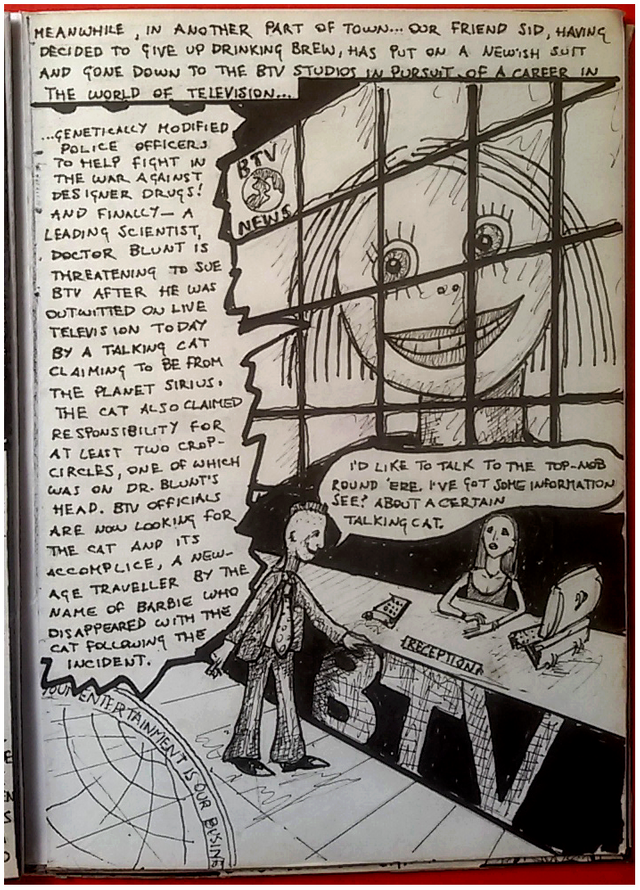 MEANWHILE, IN ANOTHER PART OF TOWN... OUR FRIEND SID, HAVING
DECIDED TO GIVE UP DRINKING BREW, HAS PUT ON A NEWISH SUIT
AND GONE DOWN TO THE BTV STUDIOS IN PURSUIT OF A CAREER IN
THE WORLD OF TELEVISION...
...GENETICALLY MODIFIED
POLICE OFFICERS
TO HELP FIGHT IN
THE WAR AGAINST
DESIGNER DRUGS!
AND FINALLY— A
LEADING SCIENTIST,
DOCTOR BLUNT IS
THREATENING TO SUE
BTV AFTER HE WAS
OUTWITTED ON LIVE
TELEVISION TODAY
BY A TALKING CAT
CLAIMING TO BE FROM
THE PLANET SIRIUS.
THE CAT ALSO CLAIMED
RESPONSIBILITY FOR
AT LEAST TWO CROP-
CIRCLES, ONE OF WHICH
WAS ON DR. BLUNT'S
HEAD. BTV OFFICIALS
ARE NOW LOOKING FOR
THE CAT AND ITS
ACCOMPLICE, A NEW-
AGE TRAVELLER BY THE
NAME OF BARBIE WHO
DISAPPEARED WITH THE
CAT FOLLOWING THE
INCIDENT.
BTV
NEWS
I'D LIKE TO TALK TO THE TOP-NOB
ROUND 'ERE. I'VE GOT SOME INFORMATION
SEE? ABOUT A CERTAIN
TALKING CAT.
RECEPTION
BTV
YOUR ENTERTAINMENT IS OUR BUSINE